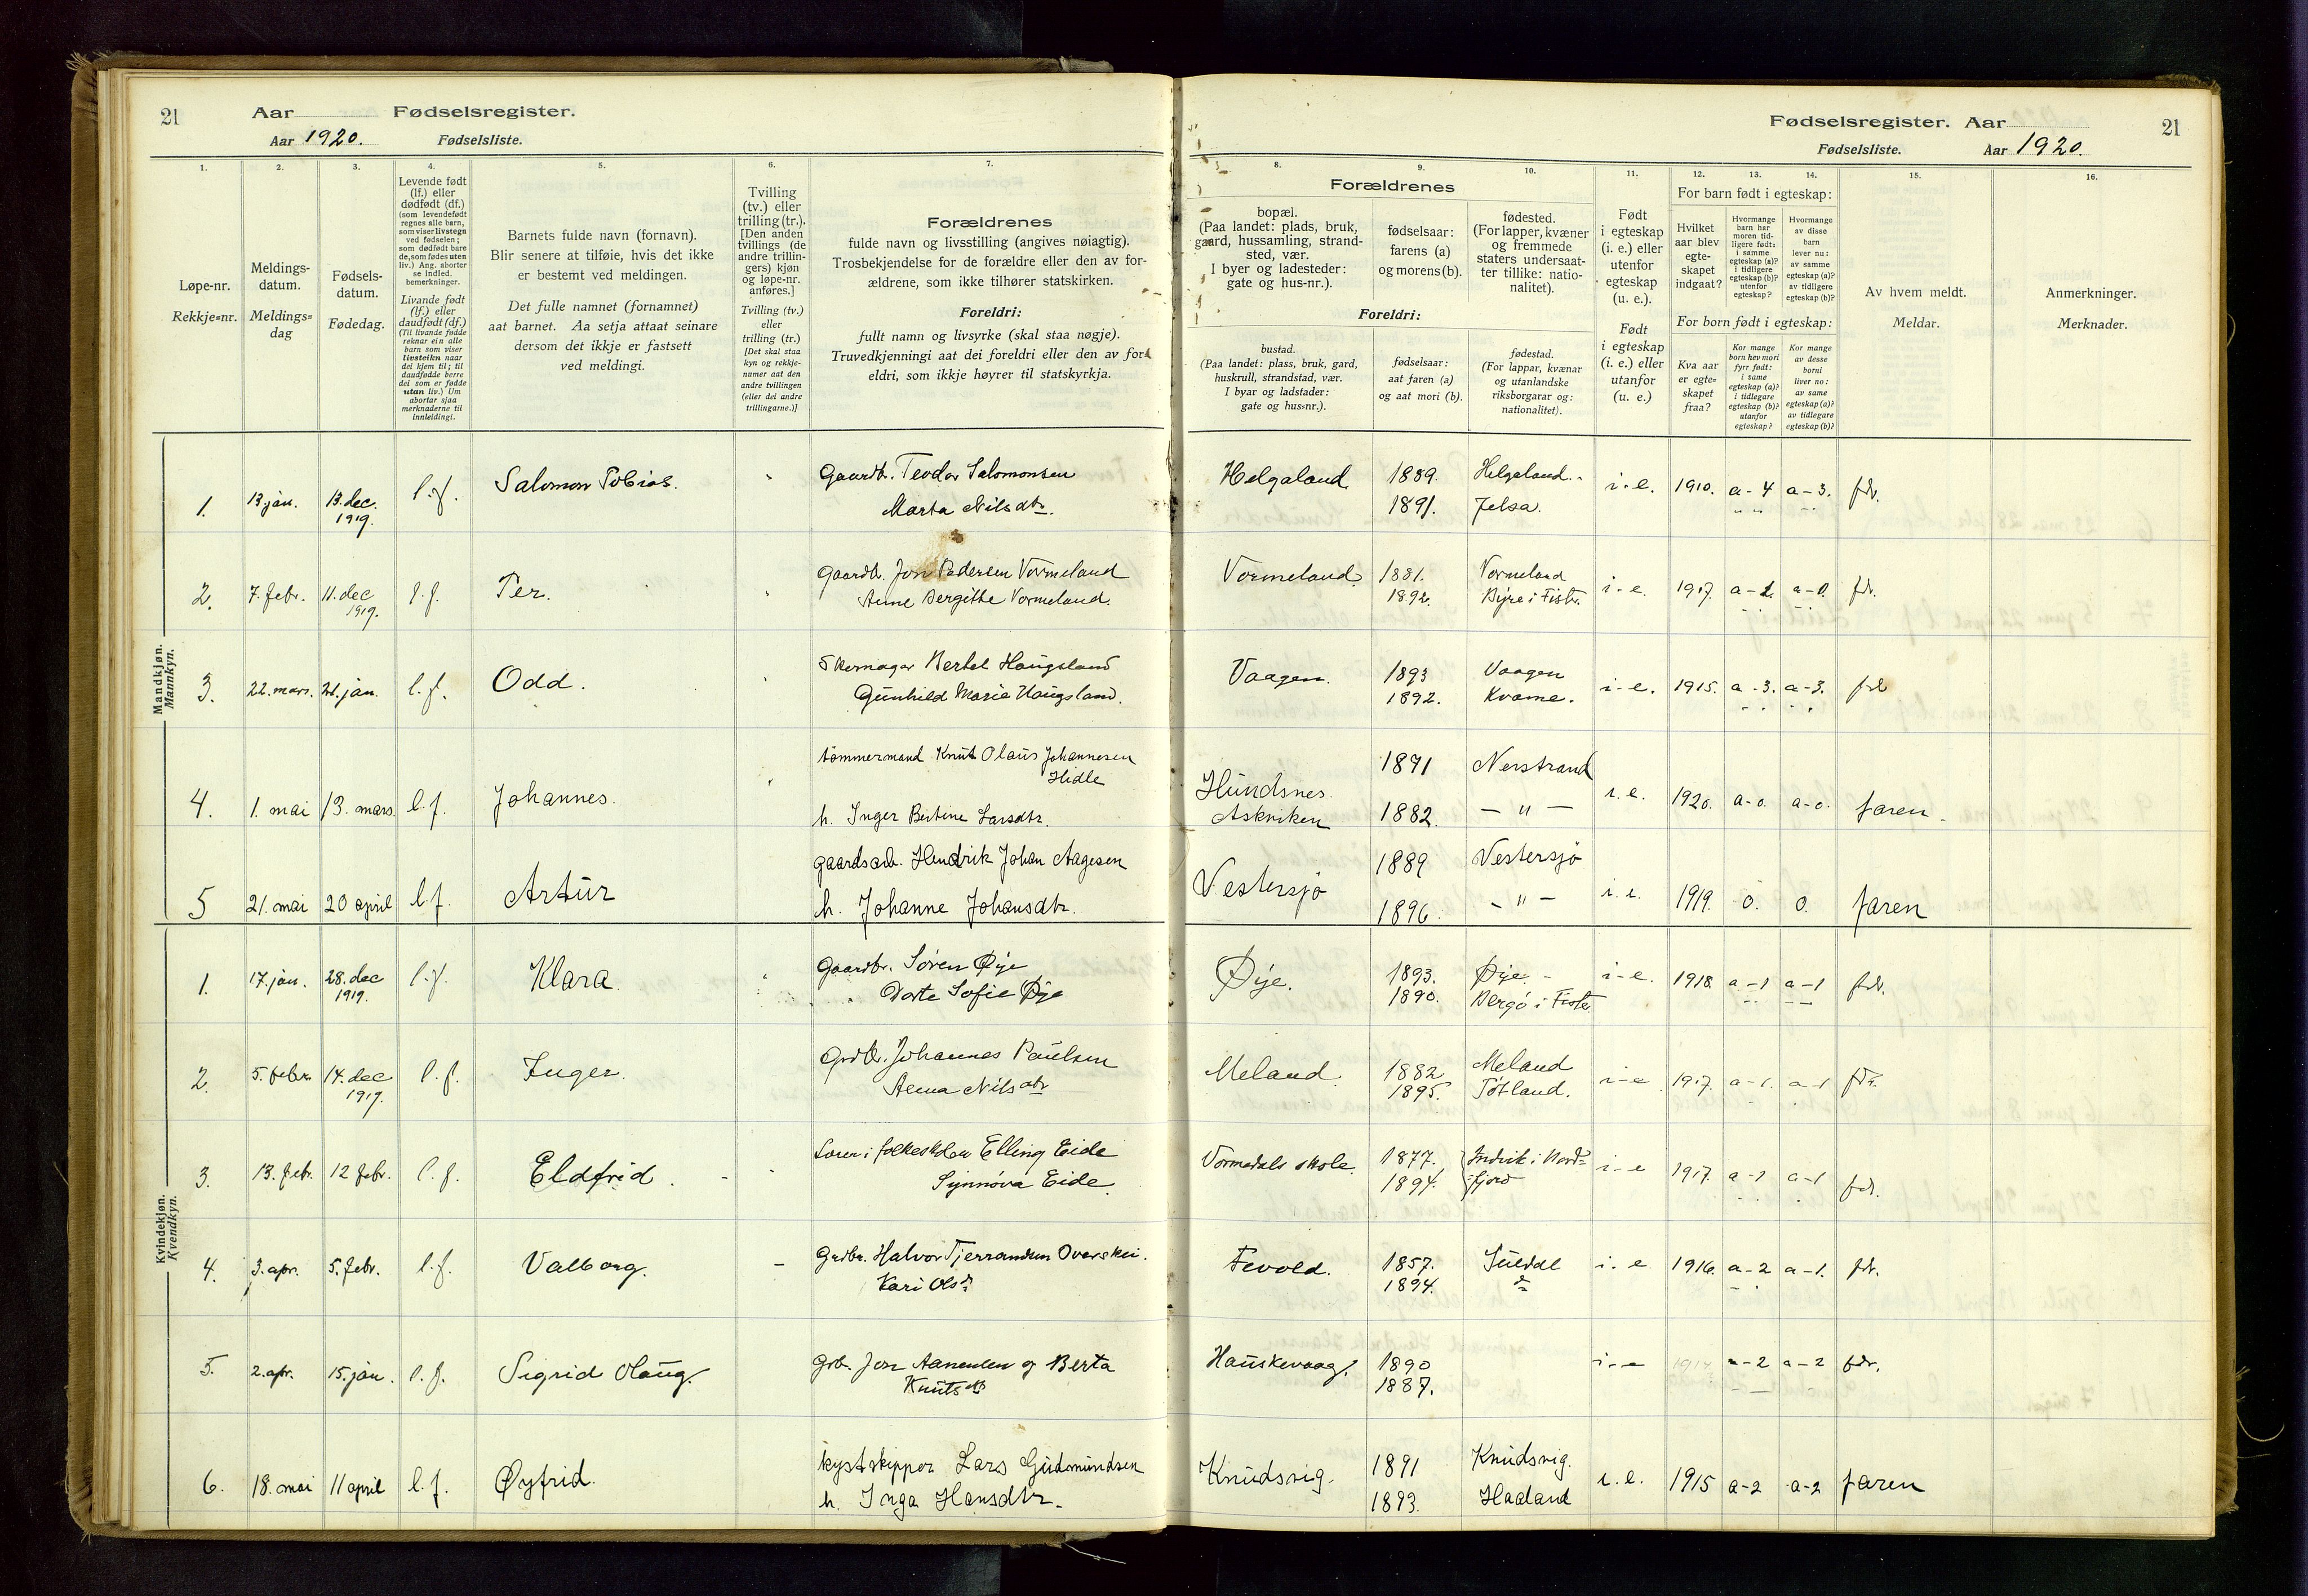 21
Aar Fødselsregister.
Aar 1920. Fødselsliste.
1.
2.
3.
4.
5.
6.
7.
Løpe-nr.
Rekkje=nr.
Meldings-
datum.
Meldings=
dag
Fødsels-
datum.
Fødedag.
Levende født
(lf.) eller
dødfødt (df.)
(som levendefødt
regnes alle barn,
som viser livstegn
ved fødselen;
som dødfødt bare
de, som fødes uten
liv.) Ang. aborter
se indled.
bemerkninger.
Livande født
(lf.) eller
daudfødt (df.)
(Til livande fødde
reknar ein alle
barn som viser
livsteikn naar
dei kjem til; til
daudfødde berre
dei som er fødde
utan liv.) Um
abortar sjaa
merknaderne til
innleidingi.
Barnets fulde navn (fornavn).
Blir senere at tilføie, hvis det ikke
er bestemt ved meldingen.
Det fulle namnet (fornamnet)
aat barnet. Aa setja attaat seinare
dersom det ikkje er fastsett
ved meldingi.
Tvilling
(tv.) eller
trilling (tr.).
[Den anden
tvillings (de
andre trillin-
gers) kjøn
og løpe-nr.
anføres.]
Tvilling (tv.)
eller
trilling (tr.)
[Det skal staa
kyn og rekkje-
numer aat den
andre tvillingen
(eller dei andre
trillingarne.)]
Forældrenes
fulde navn og livsstilling (angives nøiagtig).
Trosbekjendelse for de forældre eller den av for-
ældrene, som ikke tilhører statskirken.
Foreldri:
fullt namn og livsyrke (skal staa nøgje).
Truvedkjenningi aat dei foreldri eller den av for
eldri, som ikkje høyrer til statskyrkja.
Mandkjøn.
Mannkyn.
1. 13 jan. 13. dec. 1919. l.f. Salomon Tobias. Gaardb. Teodor Salomonsen
Marta Nilsdtr.
2. 7. febr. 11. dec 1919. l.f. Per. Gaardb. Jon Pedersen Vormeland
Anne Bergitte Vormeland.
3. 22. mars. 21. jan. l.f. Odd. Skomager Bertel Haugsland
Gunhild Marie Haugsland.
4. 1. mai 13. mars. l.f. Johannes. tømmermand Knut Olaus Johannesen
Hidle
h. Inger Bertine Larsdtr.
5 21. mai 20 april l.f. Artur gaardsarb. Hendrik Johan Aagesen
h. Johanne Johansdtr.
Kvindekjøn.
Kvendkyn.
1. 17. jan. 28. dec 1919. l.f. Klara. Gaardbr. Søren Øye
Dorte Sofie Øye
2. 5. febr. 14. dec 1919. l.f. Inger. Grdbr. Johannes Paulsen
Anna Nilsdtr
3. 13. febr. 12 febr. l.f. Eldfrid. Lærer i folkeskolen Elling Eide
Synnøva Eide.
4. 3. apr. 5. febr. l.f. Valborg. Grdbr. Halvor Tjerrandsen Overskei.
Kari Olsd.
5. 2. apr. 15. jan. l.f. Sigrid Olaug. Grb. Jon Aanensen og Berta
Knutsdtr
6. 18. mai 11 april l.f. Øyfrid. kystskipper Lars Gudmundsen
h. Inga Hansdtr.
Fødselsregister. Aar
21
Fødselsliste. Aar 1920.
8.
9.
10.
11.
12.
13.
14.
15.
16.
Forældrenes
bopæl.
(Paa landet: plads, bruk,
gaard, hussamling, strand-
sted, vær.
I byer og ladesteder:
gate og hus-nr.).
fødselsaar:
farens (a)
og morens (b).
fødested.
(For lapper, kvæner
og fremmede
staters undersaat-
ter tillike: natio-
nalitet).
Foreldri:
bustad.
(Paa landet: plass, bruk, gard,
huskrull, strandstad, vær.
I byar og ladstader:
gate og hus=nr.).
fødselsaar:
aat faren (a)
og aat mori (b).
fødestad.
(For lappar, kvænar
og utanlandske
riksborgarar og:
nationalitet).
Født
i egteskap
(i. e.) eller
utenfor
egteskap
(u. e.).
Født
i egteskap
(i. e.) eller
utanfor
(u. e.)
For barn født i egteskap:
Hvilket
aar blev
egte-
skapet
indgaat?
Hvormange
barn har
moren tid-
ligere født:
i samme
egteskap (a)?
i tidligere
egteskap (b)?
utenfor
egteskap?
Hvormange
av disse
barn
lever nu:
av samme
egteskap (a)?
av tidligere
egteskap (b)?
For born født i egteskap:
Kva aar
er egte=
skapet
fraa?
Kor mange
born hev mori
fyrr født:
i same
egteskap (a)?
i tidlegare
egteskap (b)?
utanfor
egteskap?
Kor mange
av desse
borni
liver no:
av same
egteskap (a)?
av tidlegare
egteskap (b)?
Av hvem meldt.
Meldar.
Anmerkninger.
Merknader.
Helgaland 1889. Helgaland. i-e. 1910. a-4 a-3. fdr.
1891. Jelsa.
Vormeland. 1881. Vormeland i-e. 1917. a-1. a-0. fdr.
1892. Byre i Fistr.
Vaagen. 1893 Vaagen i-e. 1915. a-3. a-3. fdr
1892. Kvame.
Hundsnes. 1871 Nerstrand i.e. 1920. a-0. a-0. faren.
Askviken 1882. — " —
Vestersjø 1889 Vestersjø i.e. 1919. 0. 0. faren
1896. — " —
Øye. 1893. Øye. i-e. 1918. a-1 a-1 fdr.
1890. Bergø i Fister
Meland. 1882 Meland i-e 1917. a-1. a-1 fdr.
1895. Tøtland.
Vormedals skole. 1877. Indvik i Nord- i-e 1917. a-1 a-1 fdr.
1894. fjord
Fevold. 1857. Suldal i.e 1916. a-2 a-1. fdr.
1894.
Hauskevaag. 1890 i-e a-2 a-2 fdr.
1887.
Knudsvig. 1891 Knudsvig. i.e. 1915 a-2 a-2 faren
1893. Haaland